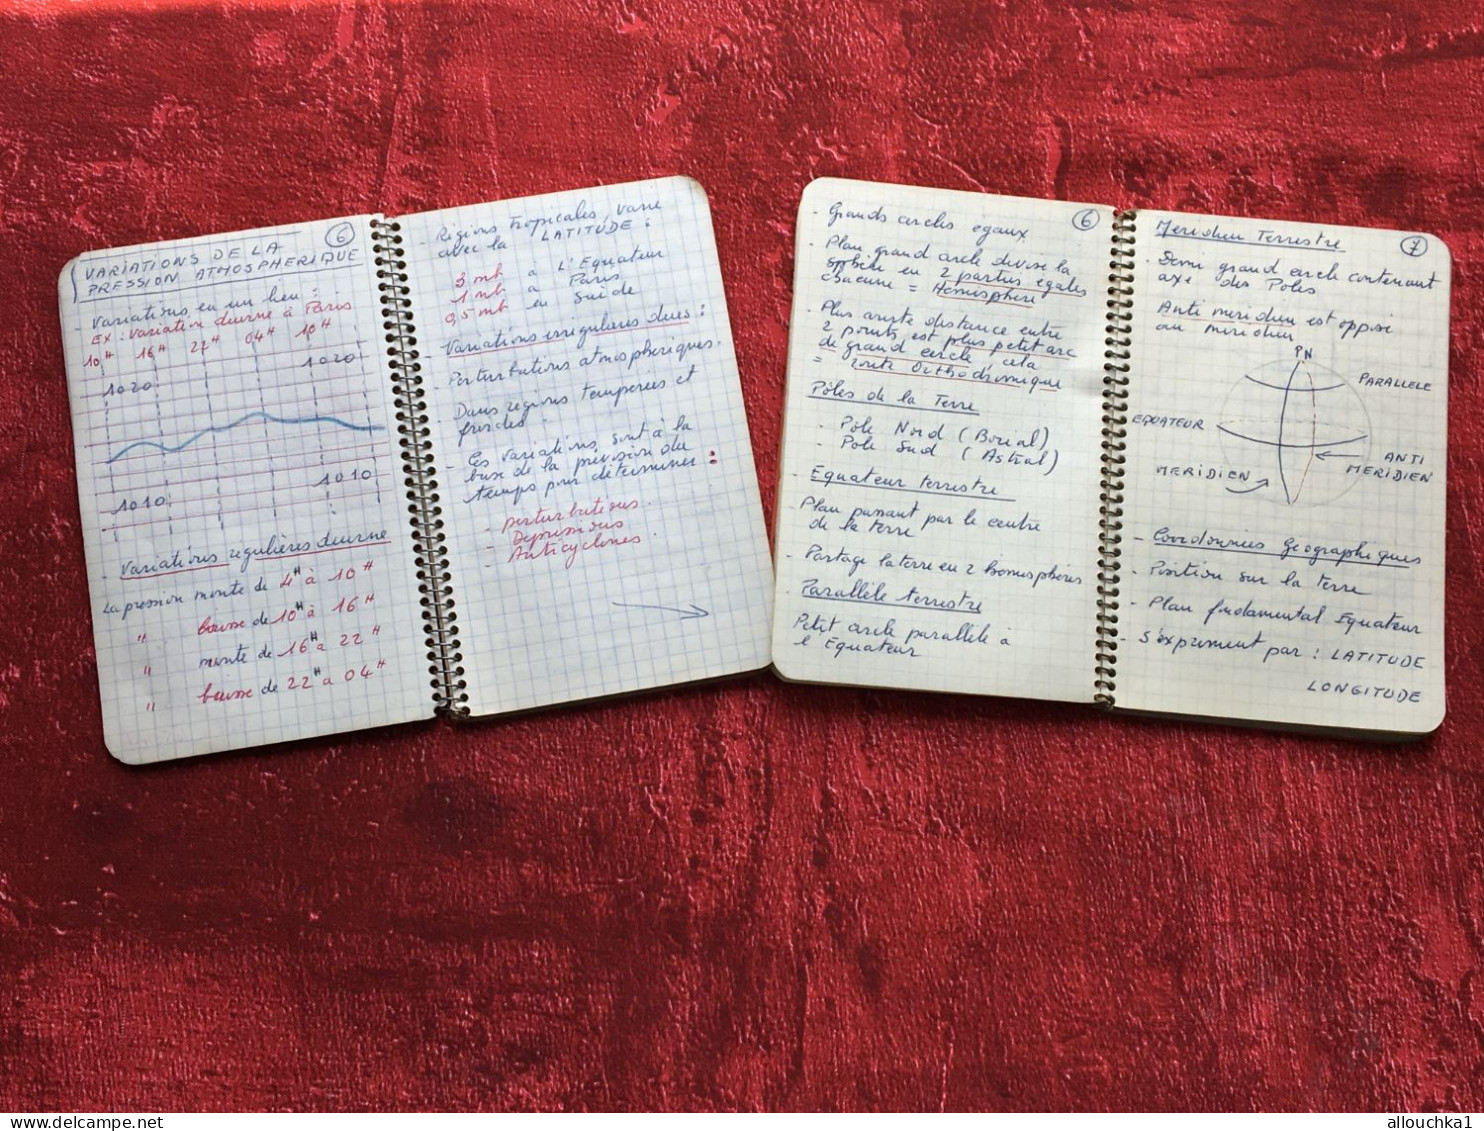 VARIATIONS DE LA
PRESSION ATMOSPHERIQUE
6
- Variations en un lieu :
EX : Variation diurne à Paris
10H 16H 22H 04H 10H
1020 1020
1010 1010
- Variations régulières diurne
La pression monte de 4H à 10H
" baisse de 10H à 16H
" monte de 16H à 22H
" baisse de 22H à 04H
- Régions Tropicales, varie
avec la LATITUDE :
3 mb à L'Equateur
1 mb à Paris
0,5 mb en Suède
- Variations irregulieres dues :
- Perturbations atmospheriques.
- Dans regions temperées et
froides.
- Ces variations sont à la
base de la prévision du
temps pour déterminer :
- perturbations.
- Depressions
- Anticyclones.
- Grands cercles egaux
6
- Plan grand cercle divise la
sphère en 2 parties égales
chacune = Hemisphere
- Plus courte distance entre
2 points est plus petit arc
de grand cercle, cela
= route Orthodromique
Pôles de la Terre
- Pôle Nord (Boréal)
- Pôle Sud (Astral)
- Equateur terrestre
- Plan passant par le centre
de la terre
- Partage la terre en 2 hemisphéres
- Parallèle terrestre
Petit cercle parallèle à
l'Equateur
Meridien Terrestre
7
- Demi grand cercle contenant
axe des Poles
Anti meridien est opposé
au meridien
PN
PARALLELE
EQUATEUR
ANTI
MERIDIEN
MERIDIEN
- Coordonnées Geographiques
- Position sur la terre
- Plan fondamental Equateur
- S'expriment par : LATITUDE
LONGITUDE
delcampe.net
allouchka1